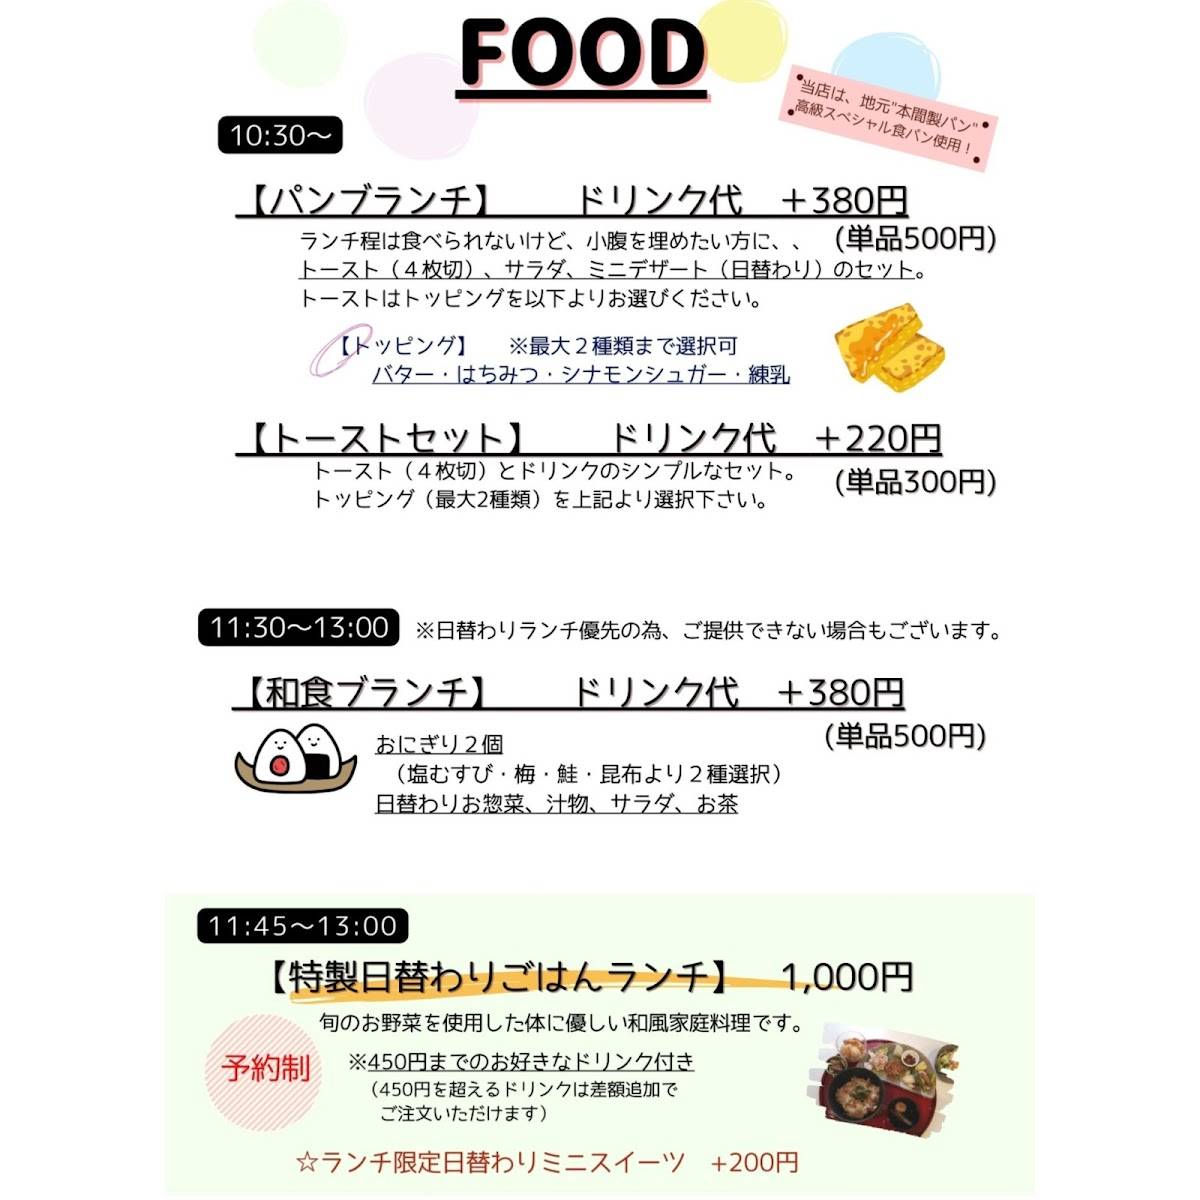 FOOD
当店は、地元"本間製パン"
高級スペシャル食パン使用！
10:30〜
【パンブランチ】 ドリンク代 ＋380円
(単品500円)
ランチ程は食べられないけど、小腹を埋めたい方に、、
トースト（４枚切）、サラダ、ミニデザート（日替わり）のセット。
トーストはトッピングを以下よりお選びください。
【トッピング】 ※最大２種類まで選択可
バター・はちみつ・シナモンシュガー・練乳
【トーストセット】 ドリンク代 ＋220円
(単品300円)
トースト（４枚切）とドリンクのシンプルなセット。
トッピング（最大2種類）を上記より選択下さい。
11:30〜13:00 ※日替わりランチ優先の為、ご提供できない場合もございます。
【和食ブランチ】 ドリンク代 ＋380円
(単品500円)
おにぎり２個
（塩むすび・梅・鮭・昆布より２種選択）
日替わりお惣菜、汁物、サラダ、お茶
11:45〜13:00
【特製日替わりごはんランチ】 1,000円
旬のお野菜を使用した体に優しい和風家庭料理です。
予約制
※450円までのお好きなドリンク付き
（450円を超えるドリンクは差額追加で
ご注文いただけます）
☆ランチ限定日替わりミニスイーツ +200円